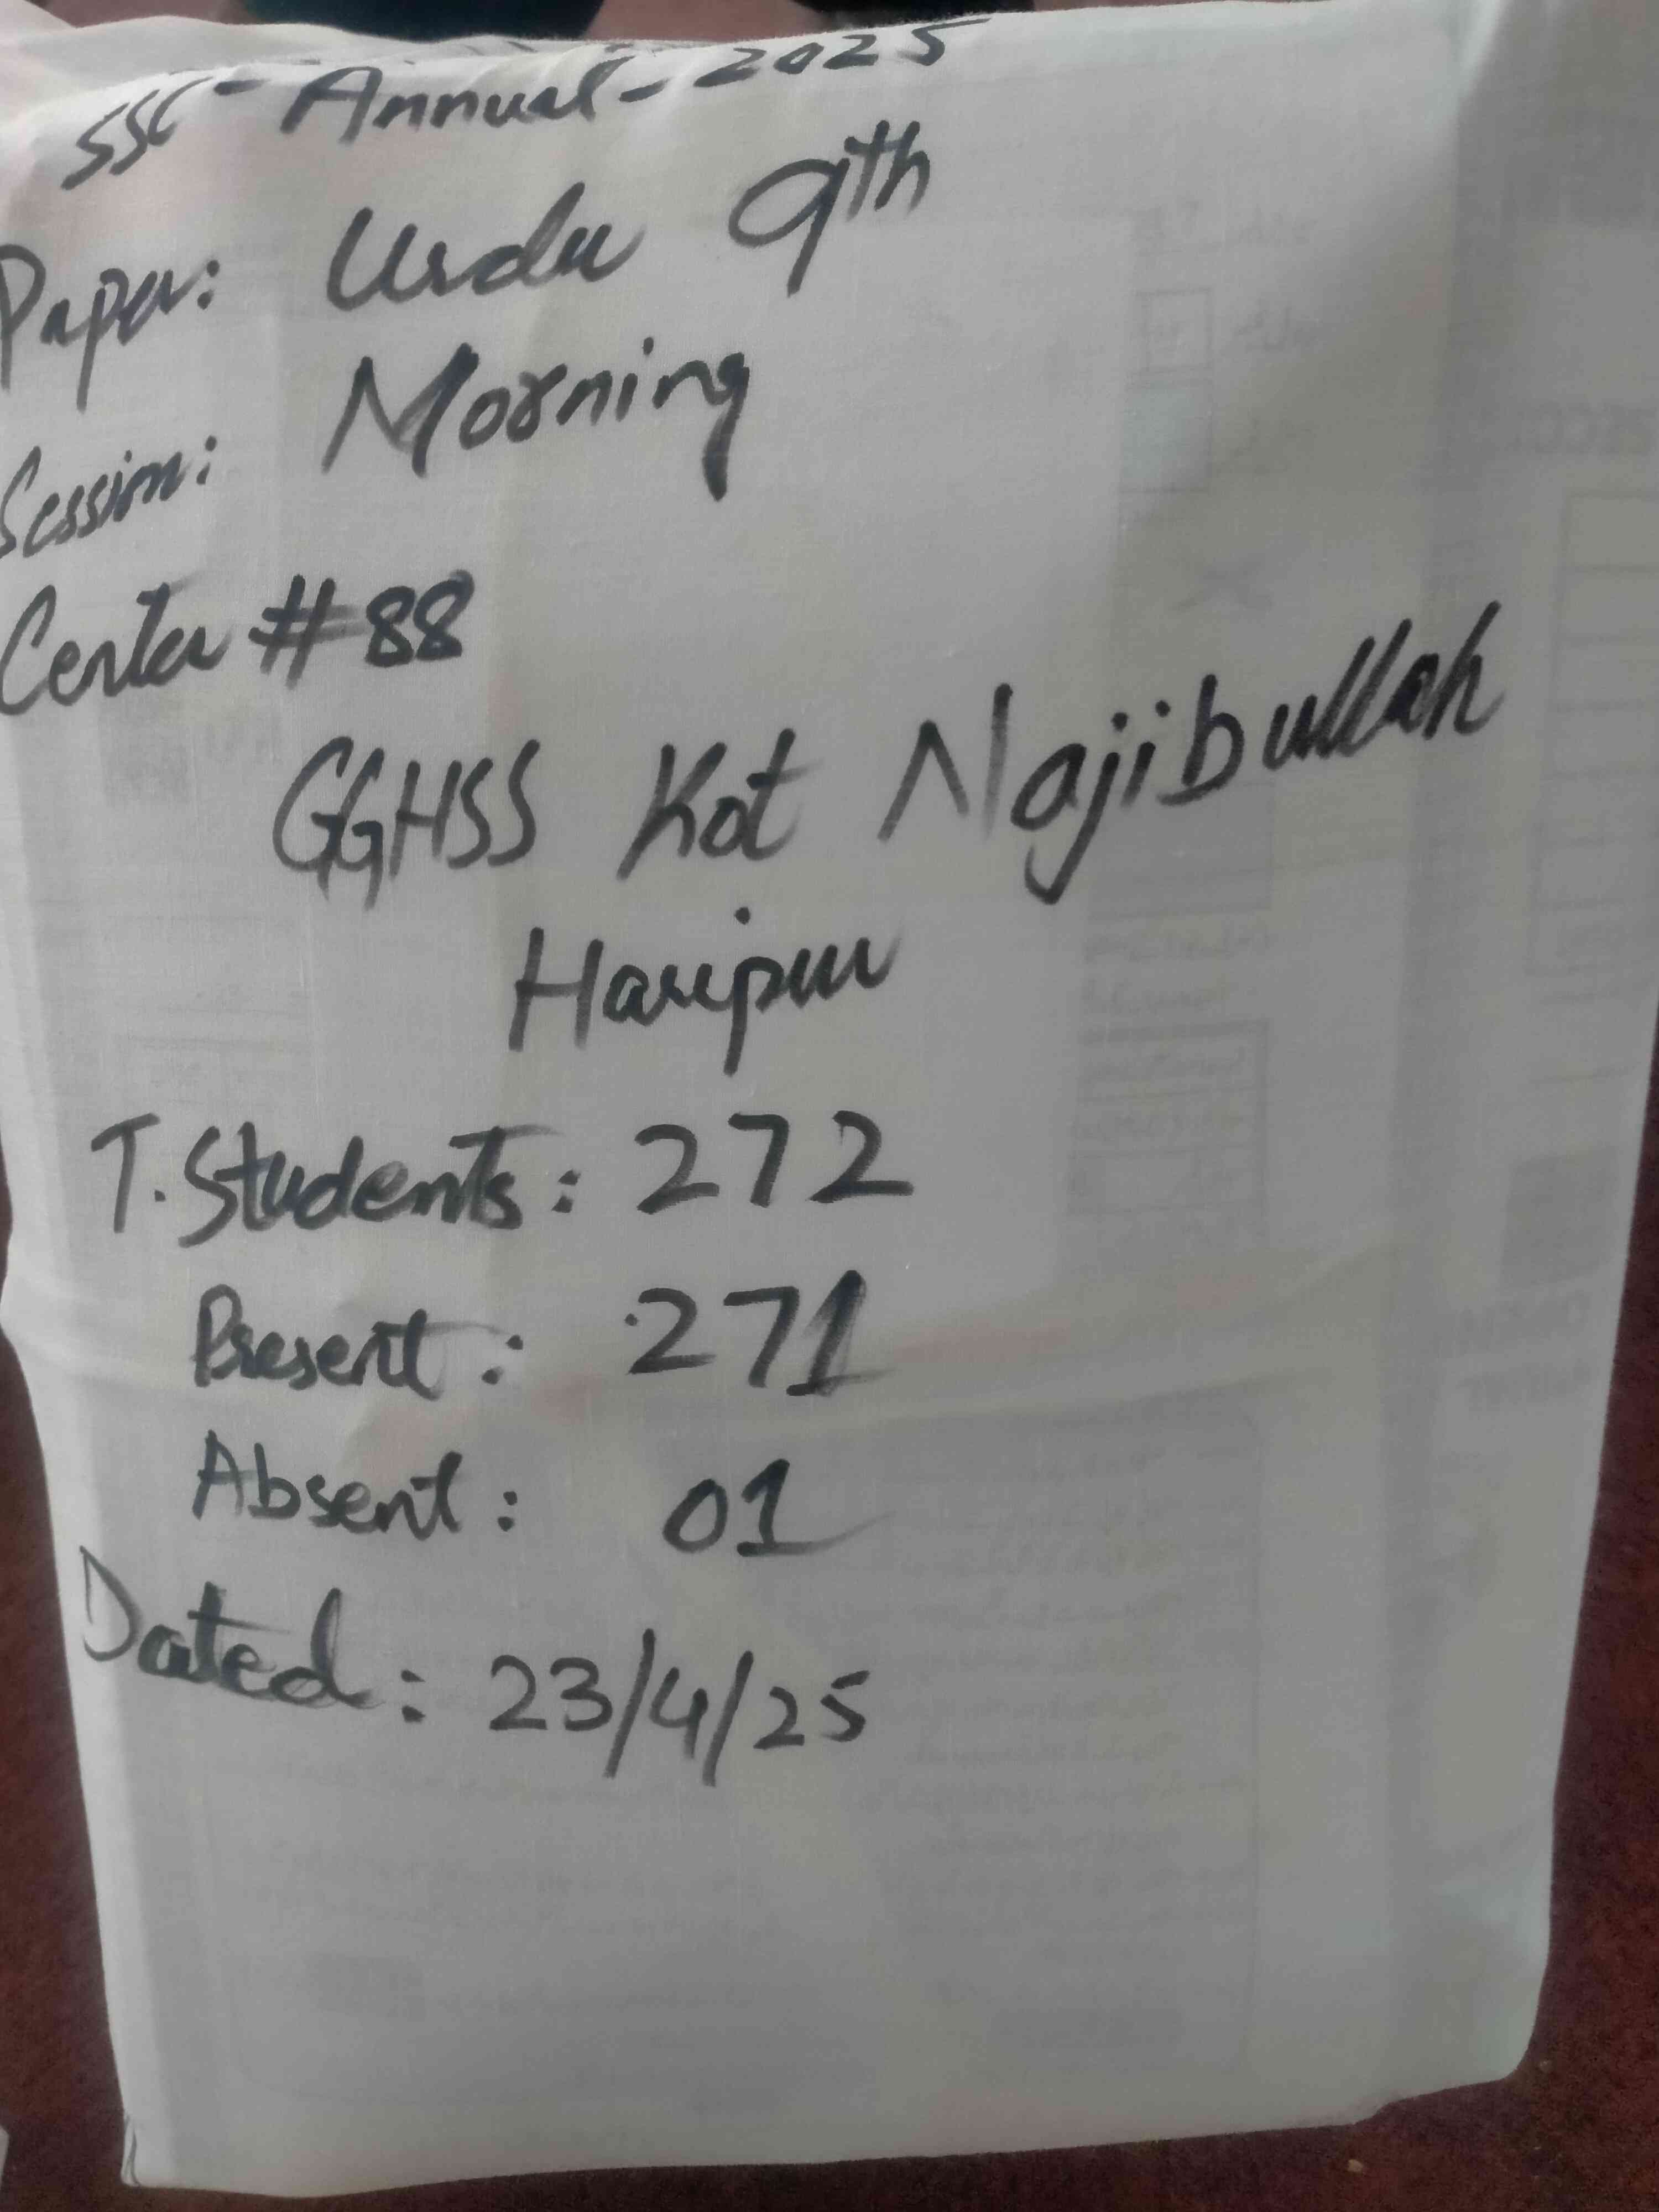 SSC - Annual - 2025
Paper: Urdu 9th
Session: Morning
Center # 88
GGHSS Kot Najibullah
Haripur
T. Students: 272
Present: 271
Absent: 01
Dated: 23/4/25